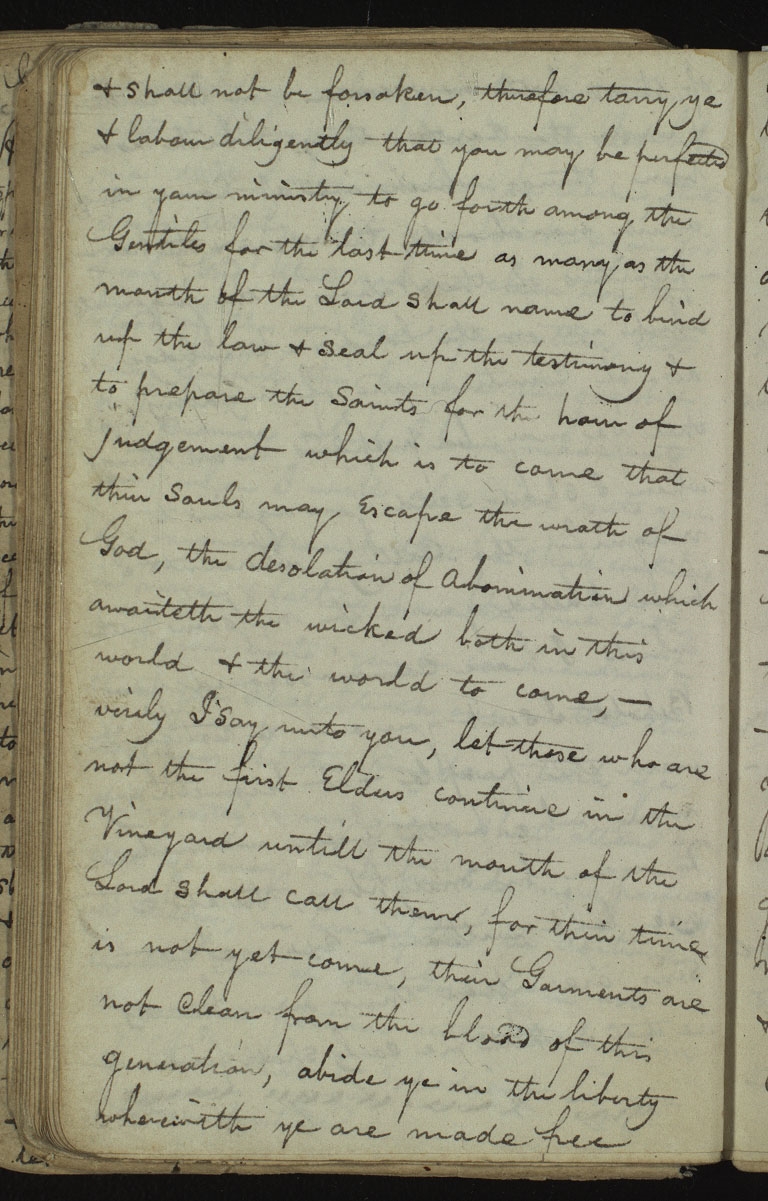 & shall not be forsaken, therefore tarry ye
& labour diligently that you may be perfected
in your ministry to go forth among the
Gentiles for the last time as many as the
mouth of the Lord shall name to bind
up the law & seal up the testimony &
to prepare the Saints for the hour of
judgement which is to come that
their Souls may Escape the wrath of
God, the desolation of Abomination which
awaiteth the wicked both in this
world & the world to come, —
verily I say unto you, let those who are
not the first Elders continue in the
Vineyard untill the mouth of the
Lord shall call them, for their time
is not yet come, their Garments are
not Clean from the blood of this
generation, abide ye in the liberty
wherewith ye are made free